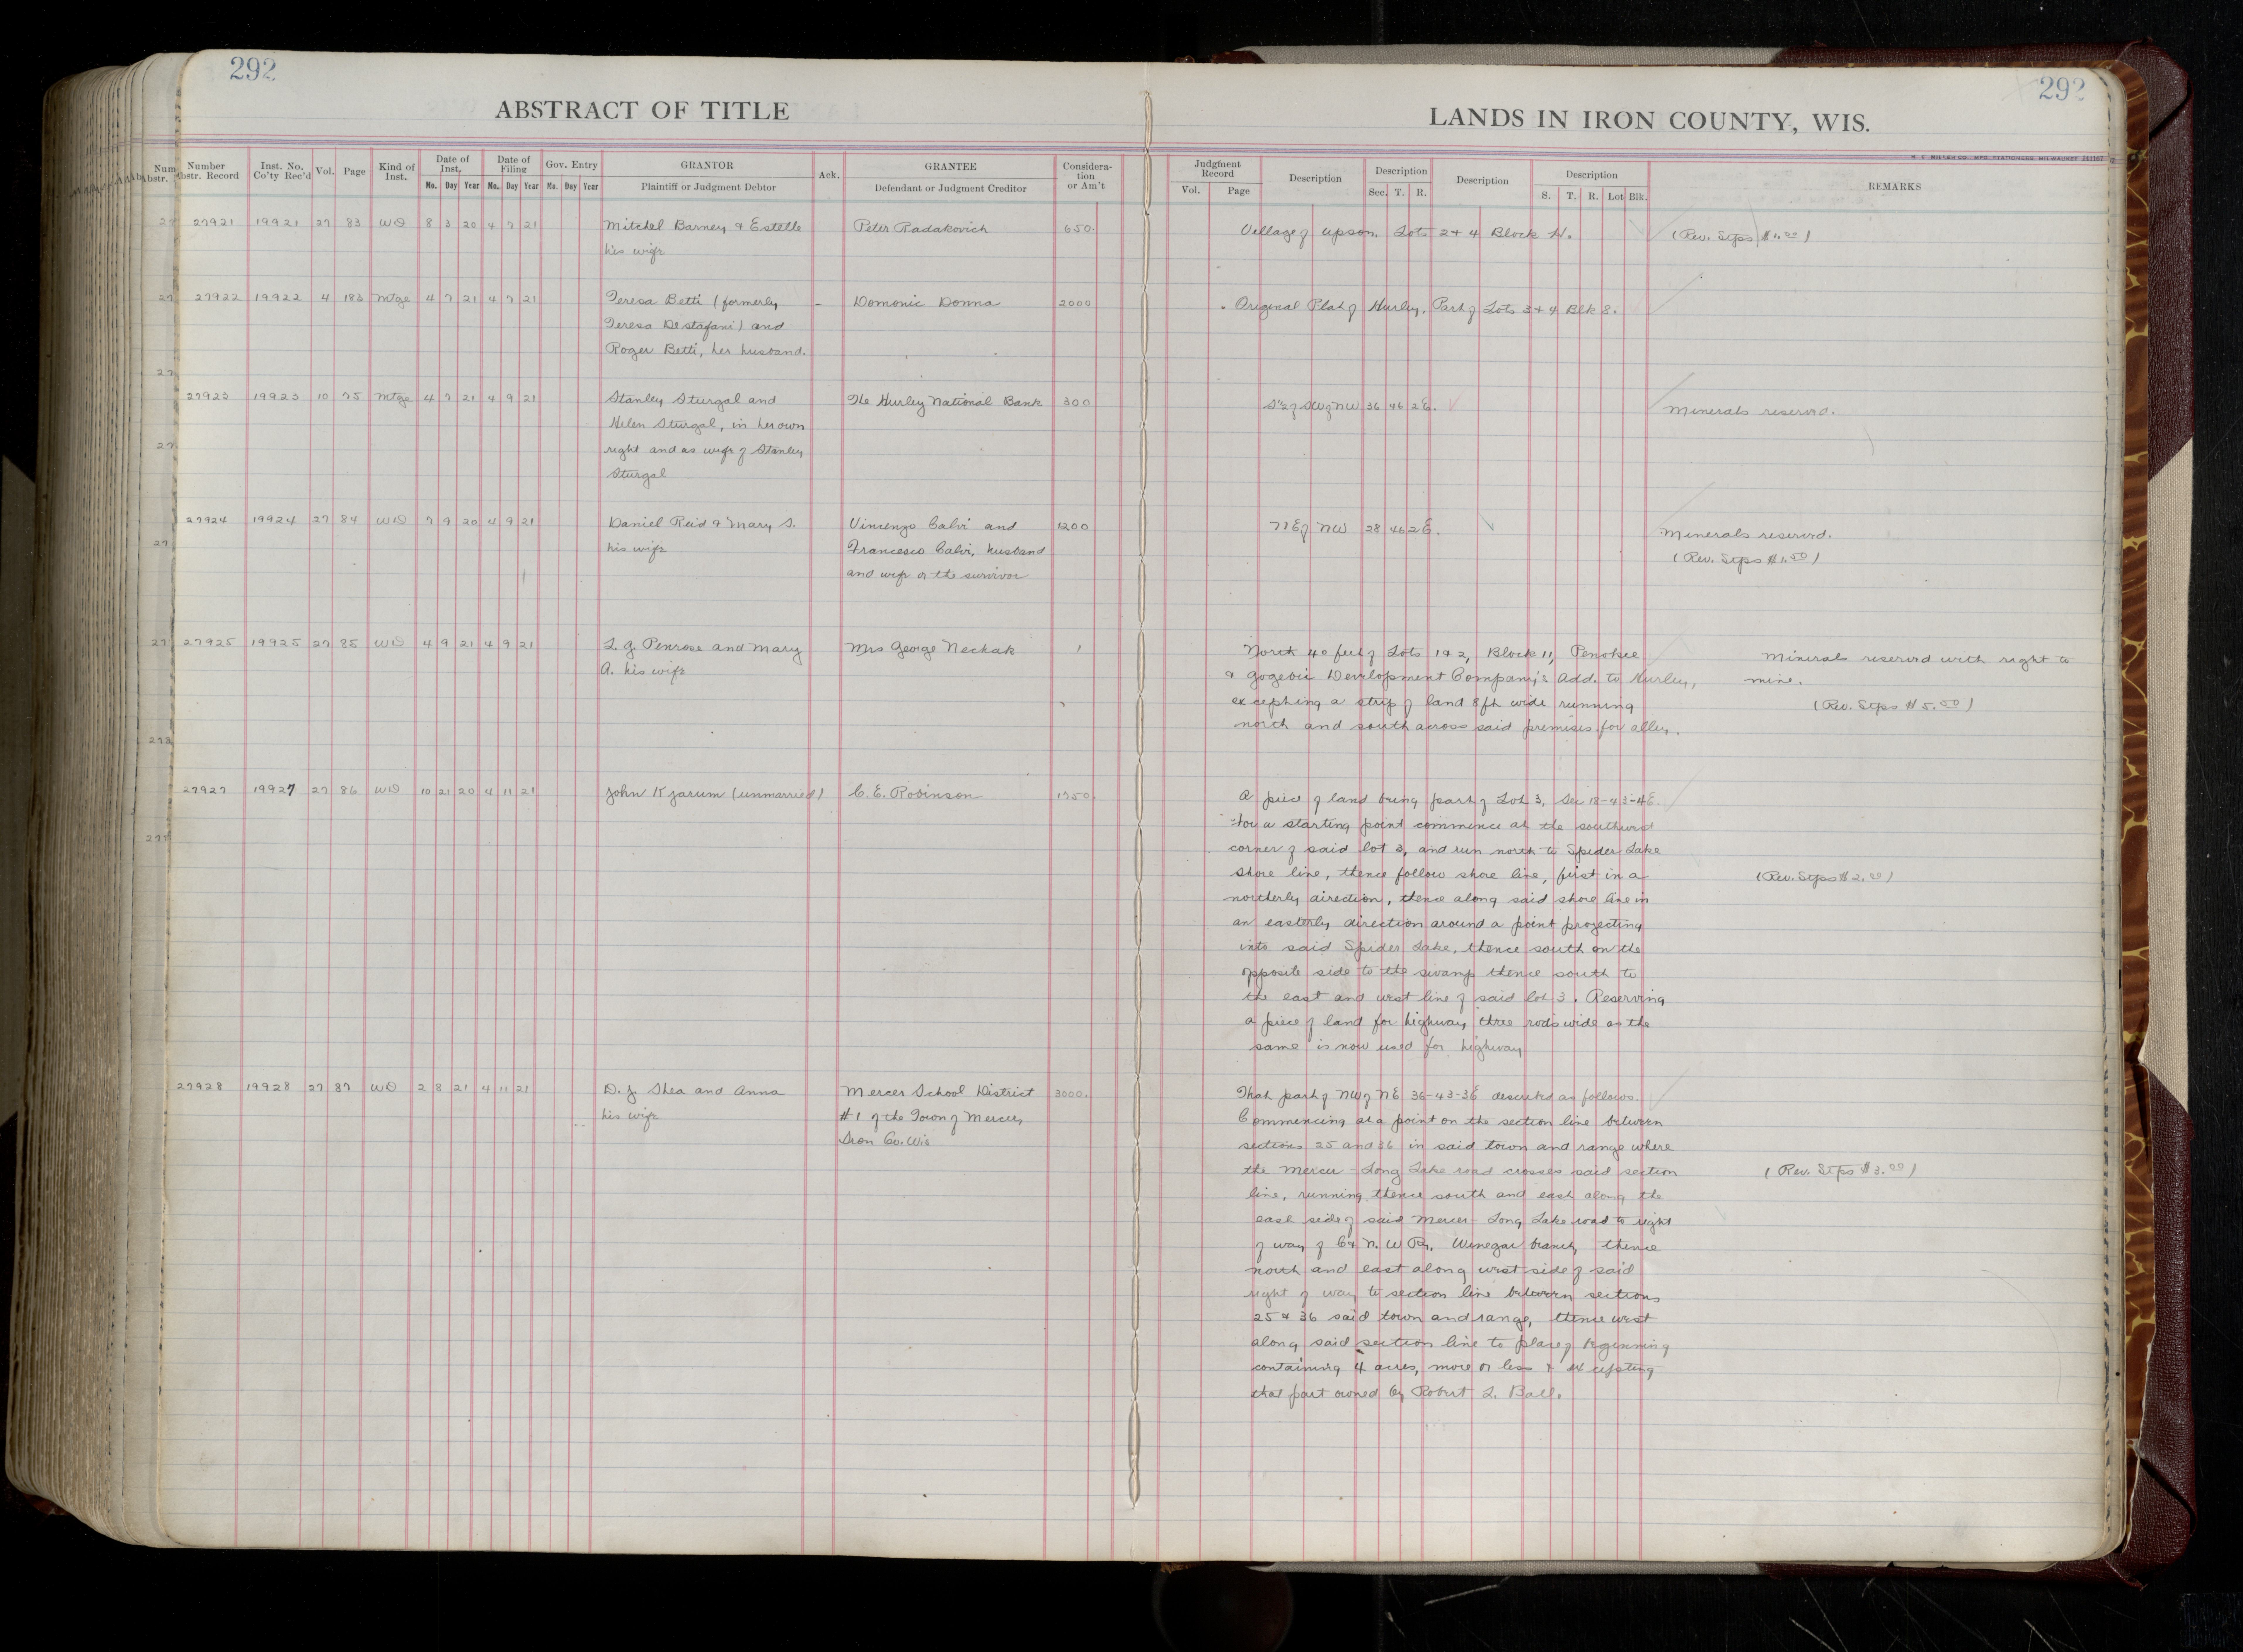 292
292
ABSTRACT OF TITLE
LANDS IN IRON COUNTY, WIS.
Number Abstr. Record Inst. No. Co'ty Rec'd Vol. Page Kind of Inst. Date of Inst. Date of Filing Gov. Entry GRANTOR Ack. GRANTEE Considera- tion or Am't Judgment Record Description Description Description Description REMARKS
Mo. Day Year Mo. Day Year Mo. Day Year Plaintiff or Judgment Debtor Defendant or Judgment Creditor Vol. Page Sec. T. R. S. T. R. Lot Blk.
27921 19921 27 83 WD 8 3 20 4 7 21 Mitchel Barney & Estelle Peter Radakovich 650. Village of Upson. Lots 2+4 Block N. (Rev. Stps $1.00)
his wife
27922 19922 4 183 Mtge 4 7 21 4 7 21 Teresa Betti (formerly – Domonic Donna 2000 Original Plat of Hurley. Part of Lots 3+4 Blk 8.
Teresa Destafani) and
Roger Betti, her husband.
27923 19923 10 75 Mtge 4 7 21 4 9 21 Stanley Sturgal and The Hurley National Bank 300 S½ of SW of NW 36 46 2E. Minerals reserved.
Helen Sturgal, in her own
right and as wife of Stanley
Sturgal
27924 19924 27 84 WD 7 9 20 4 9 21 Daniel Reid & Mary S. Vincenzo Calvi and 1200 NE of NW 28 46 2E. Minerals reserved.
his wife Francesco Calvi, husband (Rev. Stps $1.50)
and wife or the survivor
27925 19925 27 85 WD 4 9 21 4 9 21 L. G. Penrose and Mary Mrs George Nechak 1 North 40 feet of Lots 1 & 2, Block 11, Penokee Minerals reserved with right to
A. his wife & Gogebic Development Company's Add. to Hurley, mine.
excepting a strip of land 8 ft wide running (Rev. Stps $5.00)
north and south across said premises for alley.
27927 19927 27 86 WD 10 21 20 4 11 21 John Kjarum (unmarried) C. E. Robinson 1750. A piece of land being part of Lot 3, Sec 18-43-4E.
For a starting point commence at the southwest
corner of said lot 3, and run north to Spider Lake
shore line, thence follow shore line, first in a (Rev. Stps $2.00)
northerly direction, thence along said shore line in
an easterly direction around a point projecting
into said Spider Lake, thence south on the
opposite side to the swamp thence south to
the east and west line of said lot 3. Reserving
a piece of land for highway three rods wide as the
same is now used for highway
27928 19928 27 87 WD 2 8 21 4 11 21 D. J. Shea and Anna Mercer School District 3000. That part of NW of NE 36-43-3E described as follows.
his wife #1 of the Town of Mercer, Commencing at a point on the section line between
Iron Co. Wis sections 25 and 36 in said town and range where
the Mercer - Long Lake road crosses said section (Rev. Stps $3.00)
line, running thence south and east along the
east side of said Mercer - Long Lake road to right
of way of C & N. W Ry. Winegar branch, thence
north and east along west side of said
right of way to section line between sections
25 & 36 said town and range, thence west
along said section line to place of beginning
containing 4 acres, more or less & excepting
that part owned by Robert L. Ball.